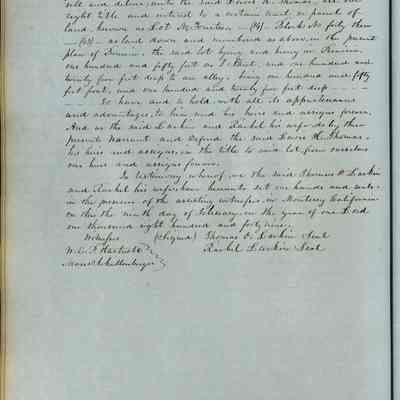 sell and debise, unto the said Lewis H. Thomas, all our
right title and interest to a certain tract or parcel of
land, known as Lot No Fourteen (14) Block No forty three
(43) as laid down and numbered as above, in the present
plan of Benicia, the said lot lying and being in Benicia,
one hundred and fifty feet on I Street, and one hundred and
twenty five feet deep to an alley, being one hundred and fifty
feet front, and one hundred and twenty five feet deep
To have and to hold with all its appurtenances
and advantages, to him and his heirs and assigns forever.
And we the said Larkin and Rachel his wife do by these
presents Warrant and Defend the said Lewis H. Thomas,
his heirs and assigns, in the title to said lot from ourselves
our heirs and assigns forever.
In testimony whereof, we the said Thomas O Larkin
and Rachel his wife, have hereunto set our hands and seals,
in the presence of the attesting witnesses, in Monterey California
on this the ninth day of February, in the year of our Lord
one thousand eight hundred and forty nine.
Witness (Signed) Thomas O. Larkin Seal
W. E. P. Hartnell Rachel Larkin Seal
Moses Schallenberger